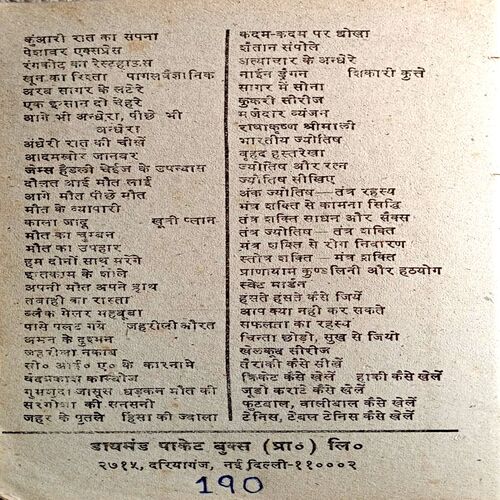 कुंआरी रात का सपना
पेशावर एक्सप्रेस
रंगकोट का रेस्टहाउस
खून का रिश्ता पागल वैज्ञानिक
अरब सागर के लुटेरे
एक इन्सान दो चेहरे
आगे भी अन्धेरा, पीछे भी
अन्धेरा
अंधेरी रात की चीखें
आदमखोर जानवर
जेम्स हैडली चेईज के उपन्यास
दौलत आई मौत लाई
आगे मौत पीछे मौत
मौत के व्यापारी
काला जादू खूनी प्लान
मौत का चुम्बन
मौत का उपहार
हम दोनों साथ मरेंगे
इन्तकाम के शोले
अपनी मौत अपने हाथ
तबाही का रास्ता
ब्लैक मेलर महबूबा
पासे पलट गये जहरीली औरत
अमन के दुश्मन
जहरीला नकाब
सी० आई० ए० के कारनामे
वेदप्रकाश काम्बोज
गुमशुदा जासूस धड़कन मौत की
सरगोशा की सनसनी
जहर के पुतले हिंसा की ज्वाला
कदम-कदम पर धोखा
शैतान संपोले
अत्याचार के अन्धेरे
नाईन ड्रैगन शिकारी कुत्ते
सागर में सोना
कुकरी सीरीज
मजेदार व्यंजन
राधाकृष्ण श्रीमाली
भारतीय ज्योतिष
वृहद हस्तरेखा
ज्योतिष और रत्न
ज्योतिष सीखिए
अंक ज्योतिष—तंत्र रहस्य
मंत्र शक्ति से कामना सिद्धि
तंत्र शक्ति साधना और सैक्स
तंत्र ज्योतिष — तंत्र शक्ति
मंत्र शक्ति से रोग निवारण
स्तोत्र शक्ति — मंत्र शक्ति
प्राणायाम कुण्डलिनी और हठयोग
स्वेट मार्डेन
हंसते हंसते कैसे जियें
आप क्या नहीं कर सकते
सफलता का रहस्य
चिन्ता छोड़ो, सुख से जियो
खेलकूद सीरीज
तैराकी कैसे सीखें
क्रिकेट कैसे खेलें हाकी कैसे खेलें
जूडो कराटे कैसे खेलें
फुटबाल, वालीबाल कैसे खेलें
टेनिस, टेबल टेनिस कैसे खेलें
डायमंड पाकेट बुक्स (प्रा०) लि०
२७१५, दरियागंज, नई दिल्ली-११०००२
190